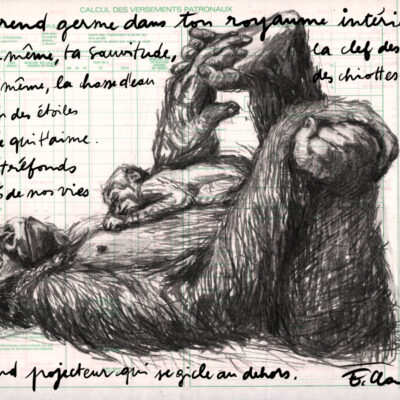 CALCUL DES VERSEMENTS PATRONAUX
rend germe dans ton royaume intéri
même, ta Sauvitude, la clef des
même, la chasse d'eau des chiottes
des étoiles
qui t'aime.
tréfonds
de nos vies
nd projecteur qui se gicle au dehors.